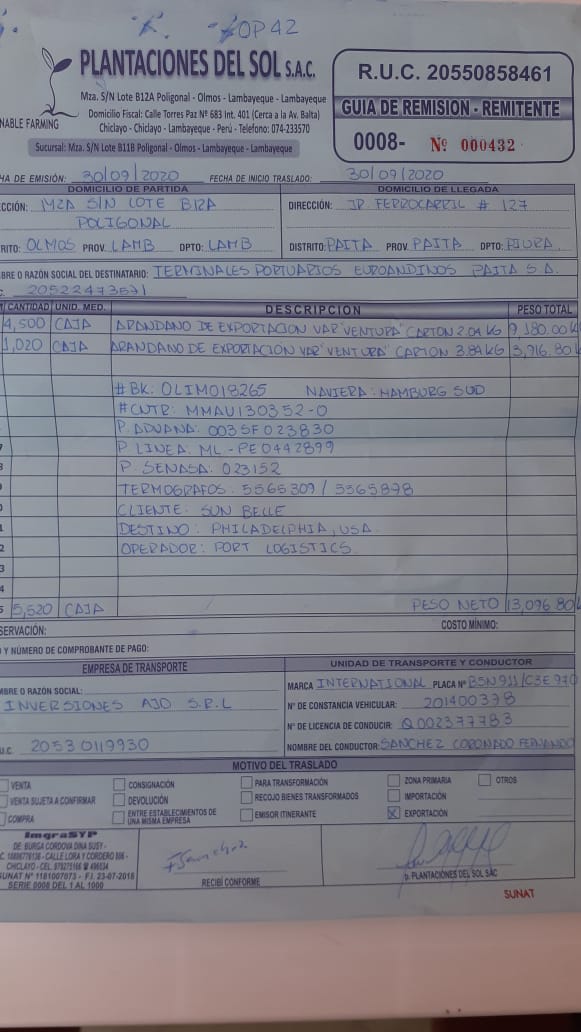 OP42
PLANTACIONES DEL SOL S.A.C.
Mza. S/N Lote B12A Poligonal - Olmos - Lambayeque - Lambayeque
Domicilio Fiscal: Calle Torres Paz Nº 683 Int. 401 (Cerca a la Av. Balta)
Chiclayo - Chiclayo - Lambayeque - Perú - Telefono: 074-233570
NABLE FARMING
Sucursal: Mza. S/N Lote B11B Poligonal - Olmos - Lambayeque - Lambayeque
R.U.C. 20550858461
GUIA DE REMISION - REMITENTE
0008- Nº 000432
HA DE EMISIÓN: 30/09/2020 FECHA DE INICIO TRASLADO: 30/09/2020
DOMICILIO DE PARTIDA
ECCIÓN: MZA S/N LOTE B12A
POLIGONAL
RITO: OLMOS PROV. LAMB DPTO: LAMB
DOMICILIO DE LLEGADA
DIRECCIÓN: JR. FERROCARRIL # 127
DISTRITO: PAITA PROV. PAITA DPTO: PIURA
BRE O RAZÓN SOCIAL DEL DESTINATARIO: TERMINALES PORTUARIOS EUROANDINOS PAITA S A.
C. 20522473571
CANTIDAD UNID. MED. DESCRIPCION PESO TOTAL
4,500 CAJA ARANDANO DE EXPORTACION VAR "VENTURA" CARTON 2.04 KG 9,180.00 K
1,020 CAJA ARANDANO DE EXPORTACION VAR "VENTURA" CARTON 3.84 KG 3,916.80 K
# BK: OLIM018265 NAVIERA: HAMBURG SUD
# CNTR: MMAU130352-0
P. ADUANA: 0035F023830
7 P LINEA: ML-PE0442899
8 P. SENASA: 023152
9 TERMOGRAFOS: 5565309 / 5565898
0 CLIENTE: SUN BELLE
1 DESTINO: PHILADELPHIA, USA
2 OPERADOR: PORT LOGISTICS
3
4
5 5,520 CAJA PESO NETO 13,096.80 K
SERVACIÓN: COSTO MÍNIMO:
O Y NÚMERO DE COMPROBANTE DE PAGO:
EMPRESA DE TRANSPORTE
MBRE O RAZÓN SOCIAL:
INVERSIONES AJO S.R.L
U.C. 20530119930
UNIDAD DE TRANSPORTE Y CONDUCTOR
MARCA INTERNATIONAL PLACA Nº B5N 911/C3E 970
Nº DE CONSTANCIA VEHICULAR: 201400378
Nº DE LICENCIA DE CONDUCIR: Q002377783
NOMBRE DEL CONDUCTOR: SANCHEZ CORONADO FERNANDO
MOTIVO DEL TRASLADO
VENTA
VENTA SUJETA A CONFIRMAR
COMPRA
CONSIGNACIÓN
DEVOLUCIÓN
ENTRE ESTABLECIMIENTOS DE
UNA MISMA EMPRESA
PARA TRANSFORMACIÓN
RECOJO BIENES TRANSFORMADOS
EMISOR ITINERANTE
ZONA PRIMARIA
IMPORTACIÓN
EXPORTACIÓN
OTROS
ImgraSYP
DE: BURGA CORDOVA DINA SUSY -
CALLE LORA Y CORDERO
CHICLAYO - CEL.
SUNAT Nº 1181007873 - F.I. 23-07-2018
SERIE 0008 DEL 1 AL 1000
RECIBÍ CONFORME
p. PLANTACIONES DEL SOL SAC
SUNAT